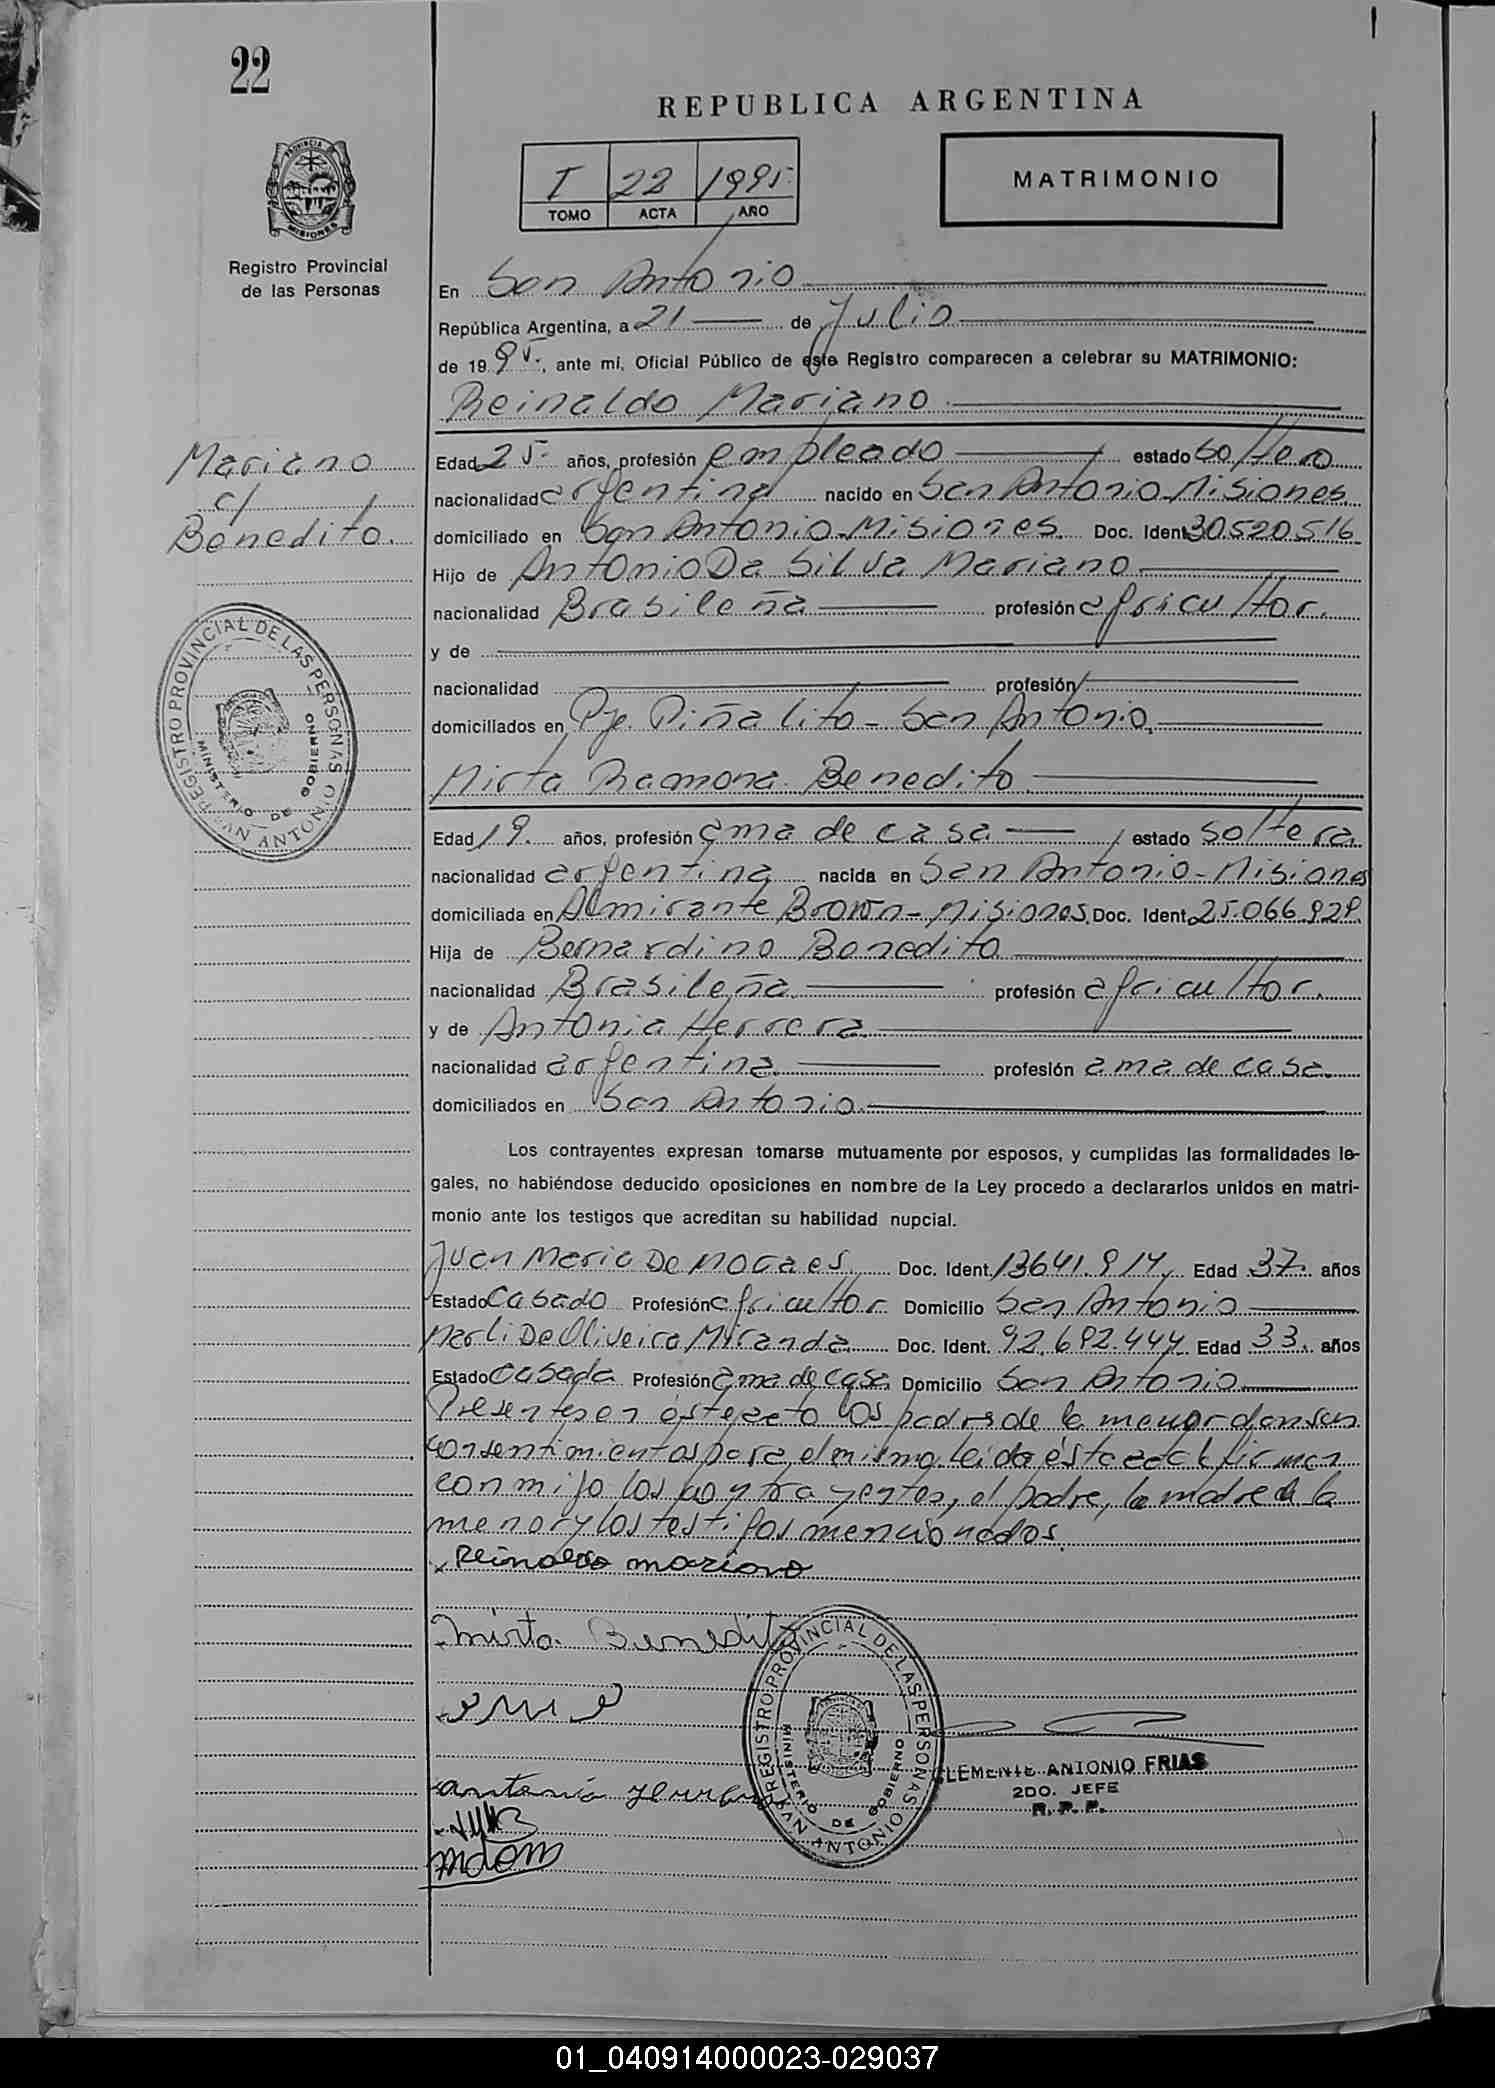 22
REPUBLICA ARGENTINA
I 22 1995
TOMO ACTA AÑO
MATRIMONIO
PROVINCIA DE MISIONES
Registro Provincial
de las Personas
En San Antonio
República Argentina, a 21 de Julio
de 1995, ante mi, Oficial Público de este Registro comparecen a celebrar su MATRIMONIO:
Reinaldo Mariano
Mariano
c/
Benedito.
Edad 25 años, profesión empleado estado soltero
nacionalidad argentina nacido en San Antonio-Misiones
domiciliado en San Antonio-Misiones. Doc. Ident 30.520.516
Hijo de Antonio Da Silva Mariano
nacionalidad Brasileña profesión agricultor.
y de
nacionalidad profesión
domiciliados en Pje. Piñalito - San Antonio
REGISTRO PROVINCIAL DE LAS PERSONAS
MINISTERIO DE GOBIERNO
SAN ANTONIO
Mirta Ramona Benedito
Edad 19. años, profesión ama de casa estado soltera
nacionalidad argentina nacida en San Antonio-Misiones
domiciliada en Almirante Brown-Misiones. Doc. Ident. 25.066.929.
Hija de Bernardino Benedito
nacionalidad Brasileña profesión agricultor.
y de Antonia Herrera
nacionalidad argentina profesión ama de casa.
domiciliados en San Antonio.
Los contrayentes expresan tomarse mutuamente por esposos, y cumplidas las formalidades le-
gales, no habiéndose deducido oposiciones en nombre de la Ley procedo a declararlos unidos en matri-
monio ante los testigos que acreditan su habilidad nupcial.
Juan Maria De Moraes Doc. Ident. 13641.914 Edad 37. años
Estado Casado Profesión agricultor Domicilio San Antonio
Marli De Oliveira Miranda Doc. Ident. 92.692.444 Edad 33. años
Estado Casada Profesión ama de casa Domicilio San Antonio
Presentes en éste acto los padres de la menor dan sus
consentimientos para el mismo. Leída ésta acta la firman
conmigo los contrayentes, el padre, la madre de la
menor y los testigos mencionados.
Reinaldo Mariano
Mirta Benedito
REGISTRO PROVINCIAL DE LAS PERSONAS
MINISTERIO DE GOBIERNO
SAN ANTONIO
CLEMENTE ANTONIO FRIAS
2DO. JEFE
R. P. P.
antonia Herrera
01_040914000023-029037